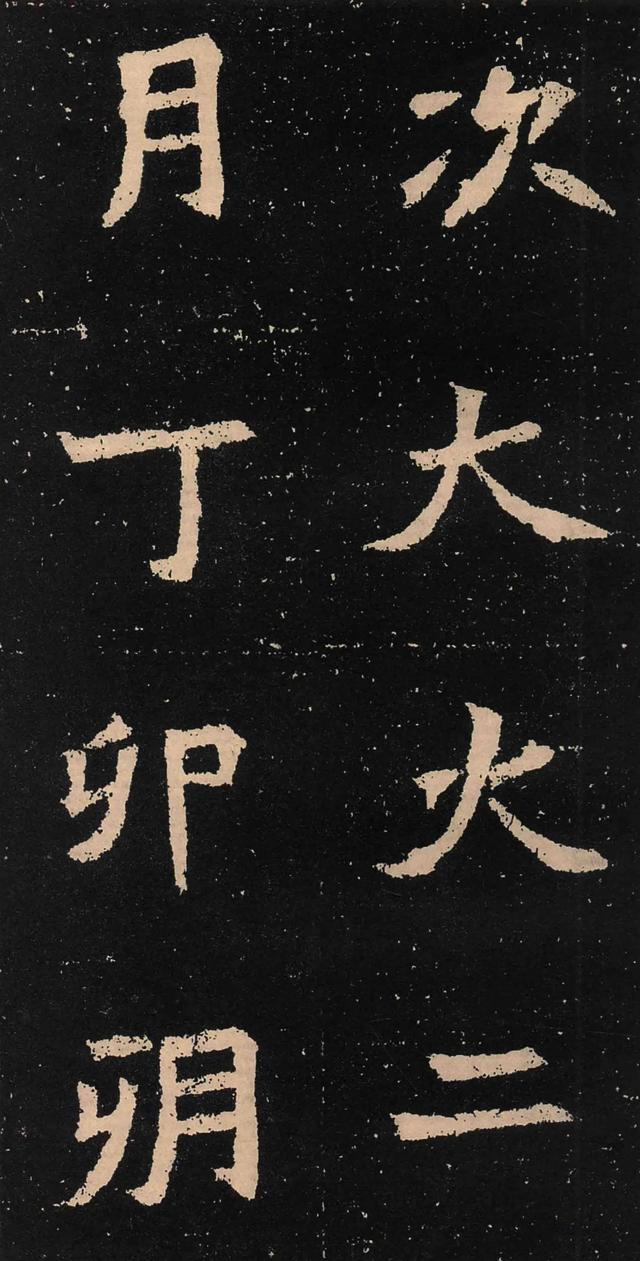 次大火二
月丁卯朔